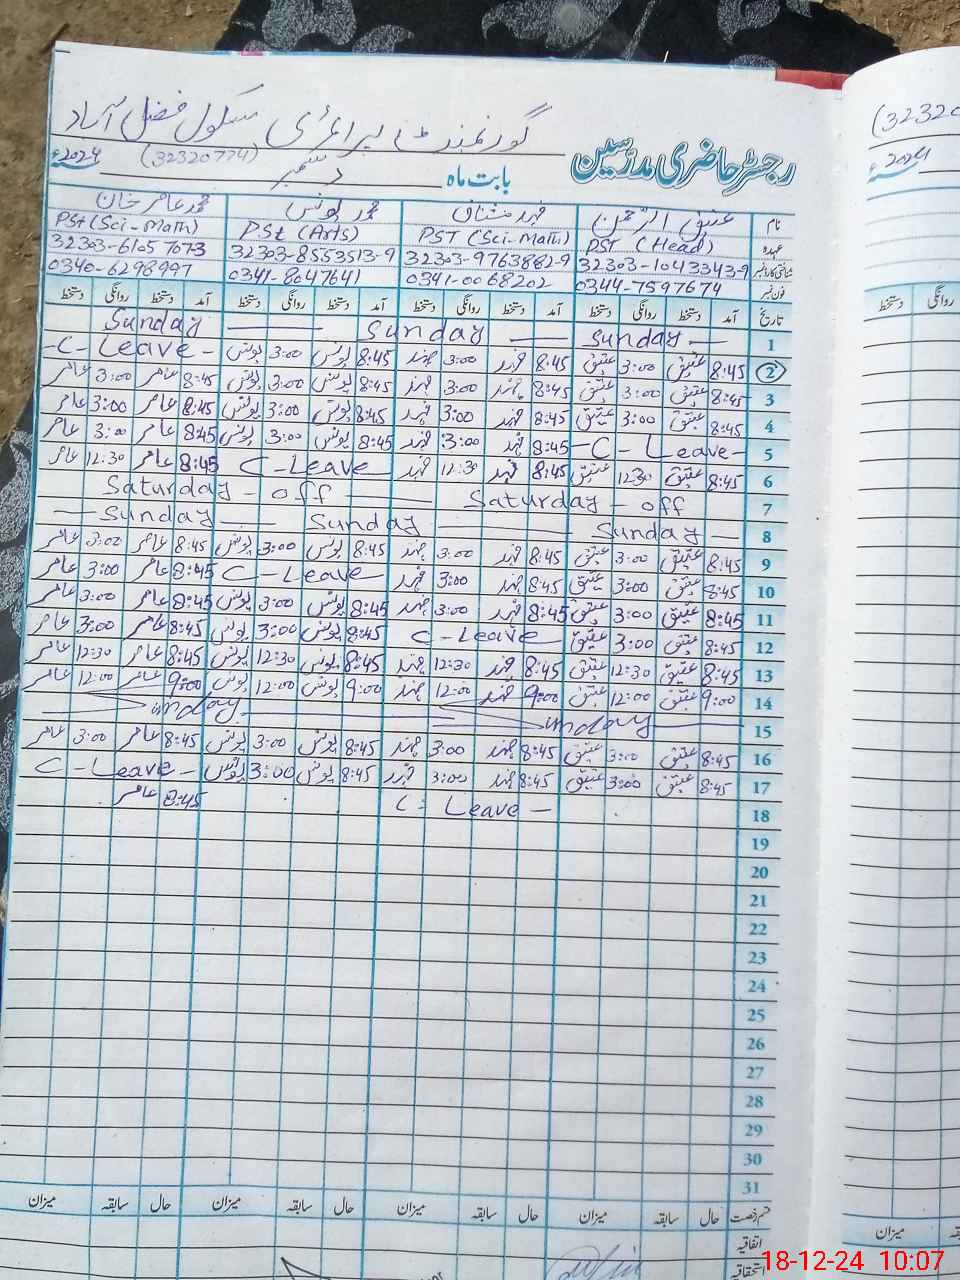 گورنمنٹ پرائمری سکول فضل آباد
رجسٹر حاضری مدرسین
بابت ماہ دسمبر (32320774) 2024ء
نام عتیق الرحمن فہد مشتاق محمد یونس محمد عامر خان
عہدہ PST (Head) PST (Sci-Math) PSt (Arts) PSt (Sci-Math)
شناختی کارڈ نمبر 32303-1043343-9 32303-9763882-9 32303-8553513-9 32303-6105707-3
فون نمبر 0344-7597674 0341-0068202 0341-8047641 0340-6298997
تاریخ آمد دستخط روانگی دستخط آمد دستخط روانگی دستخط آمد دستخط روانگی دستخط آمد دستخط روانگی دستخط
1 Sunday Sunday Sunday
2 8:45 عتیق 3:00 عتیق 8:45 فہد 3:00 فہد 8:45 یونس 3:00 یونس -C- Leave-
3 8:45 عتیق 3:00 عتیق 8:45 فہد 3:00 فہد 8:45 یونس 3:00 یونس 8:45 عامر 3:00 عامر
4 8:45 عتیق 3:00 عتیق 8:45 فہد 3:00 فہد 8:45 یونس 3:00 یونس 8:45 عامر 3:00 عامر
5 -C- Leave- 8:45 فہد 3:00 فہد 8:45 یونس 3:00 یونس 8:45 عامر 3:00 عامر
6 8:45 عتیق 12:30 عتیق 8:45 فہد 12:30 فہد C-Leave 8:45 عامر 12:30 عامر
7 Saturday - off Saturday - off
8 Sunday Sunday Sunday
9 8:45 عتیق 3:00 عتیق 8:45 فہد 3:00 فہد 8:45 یونس 3:00 یونس 8:45 عامر 3:00 عامر
10 8:45 عتیق 3:00 عتیق 8:45 فہد 3:00 فہد C-Leave 8:45 عامر 3:00 عامر
11 8:45 عتیق 3:00 عتیق 8:45 فہد 3:00 فہد 8:45 یونس 3:00 یونس 8:45 عامر 3:00 عامر
12 8:45 عتیق 3:00 عتیق C-Leave 8:45 یونس 3:00 یونس 8:45 عامر 3:00 عامر
13 8:45 عتیق 12:30 عتیق 8:45 فہد 12:30 فہد 8:45 یونس 12:30 یونس 8:45 عامر 12:30 عامر
14 9:00 عتیق 12:00 عتیق 9:00 فہد 12:00 فہد 9:00 یونس 12:00 یونس 9:00 عامر 12:00 عامر
15 Sunday Sunday
16 8:45 عتیق 3:00 عتیق 8:45 فہد 3:00 فہد 8:45 یونس 3:00 یونس 8:45 عامر 3:00 عامر
17 8:45 عتیق 3:00 عتیق 8:45 فہد 3:00 فہد 8:45 یونس 3:00 یونس C-Leave-
18 C- Leave - 8:45 عامر
19
20
21
22
23
24
25
26
27
28
29
30
31
قسم رخصت حال سابقہ میزان حال سابقہ میزان حال سابقہ میزان حال سابقہ میزان
اتفاقیہ
استحقاقیہ
(32320
2024ء
روانگی دستخط
میزان
18-12-24 10:07